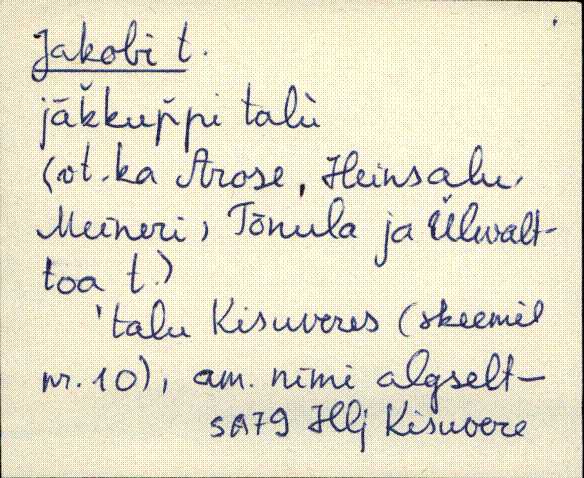 Jakobi t.
jāk̆kup̆pi talù
(vt. ka Arose, Heinsalu,
Meineri, Tõnula ja Ülwalt-
toa t.)
'talu Kisuveres (skeemil
nr. 10), am. nimi algselt –
SA79 Hlj Kisuvere